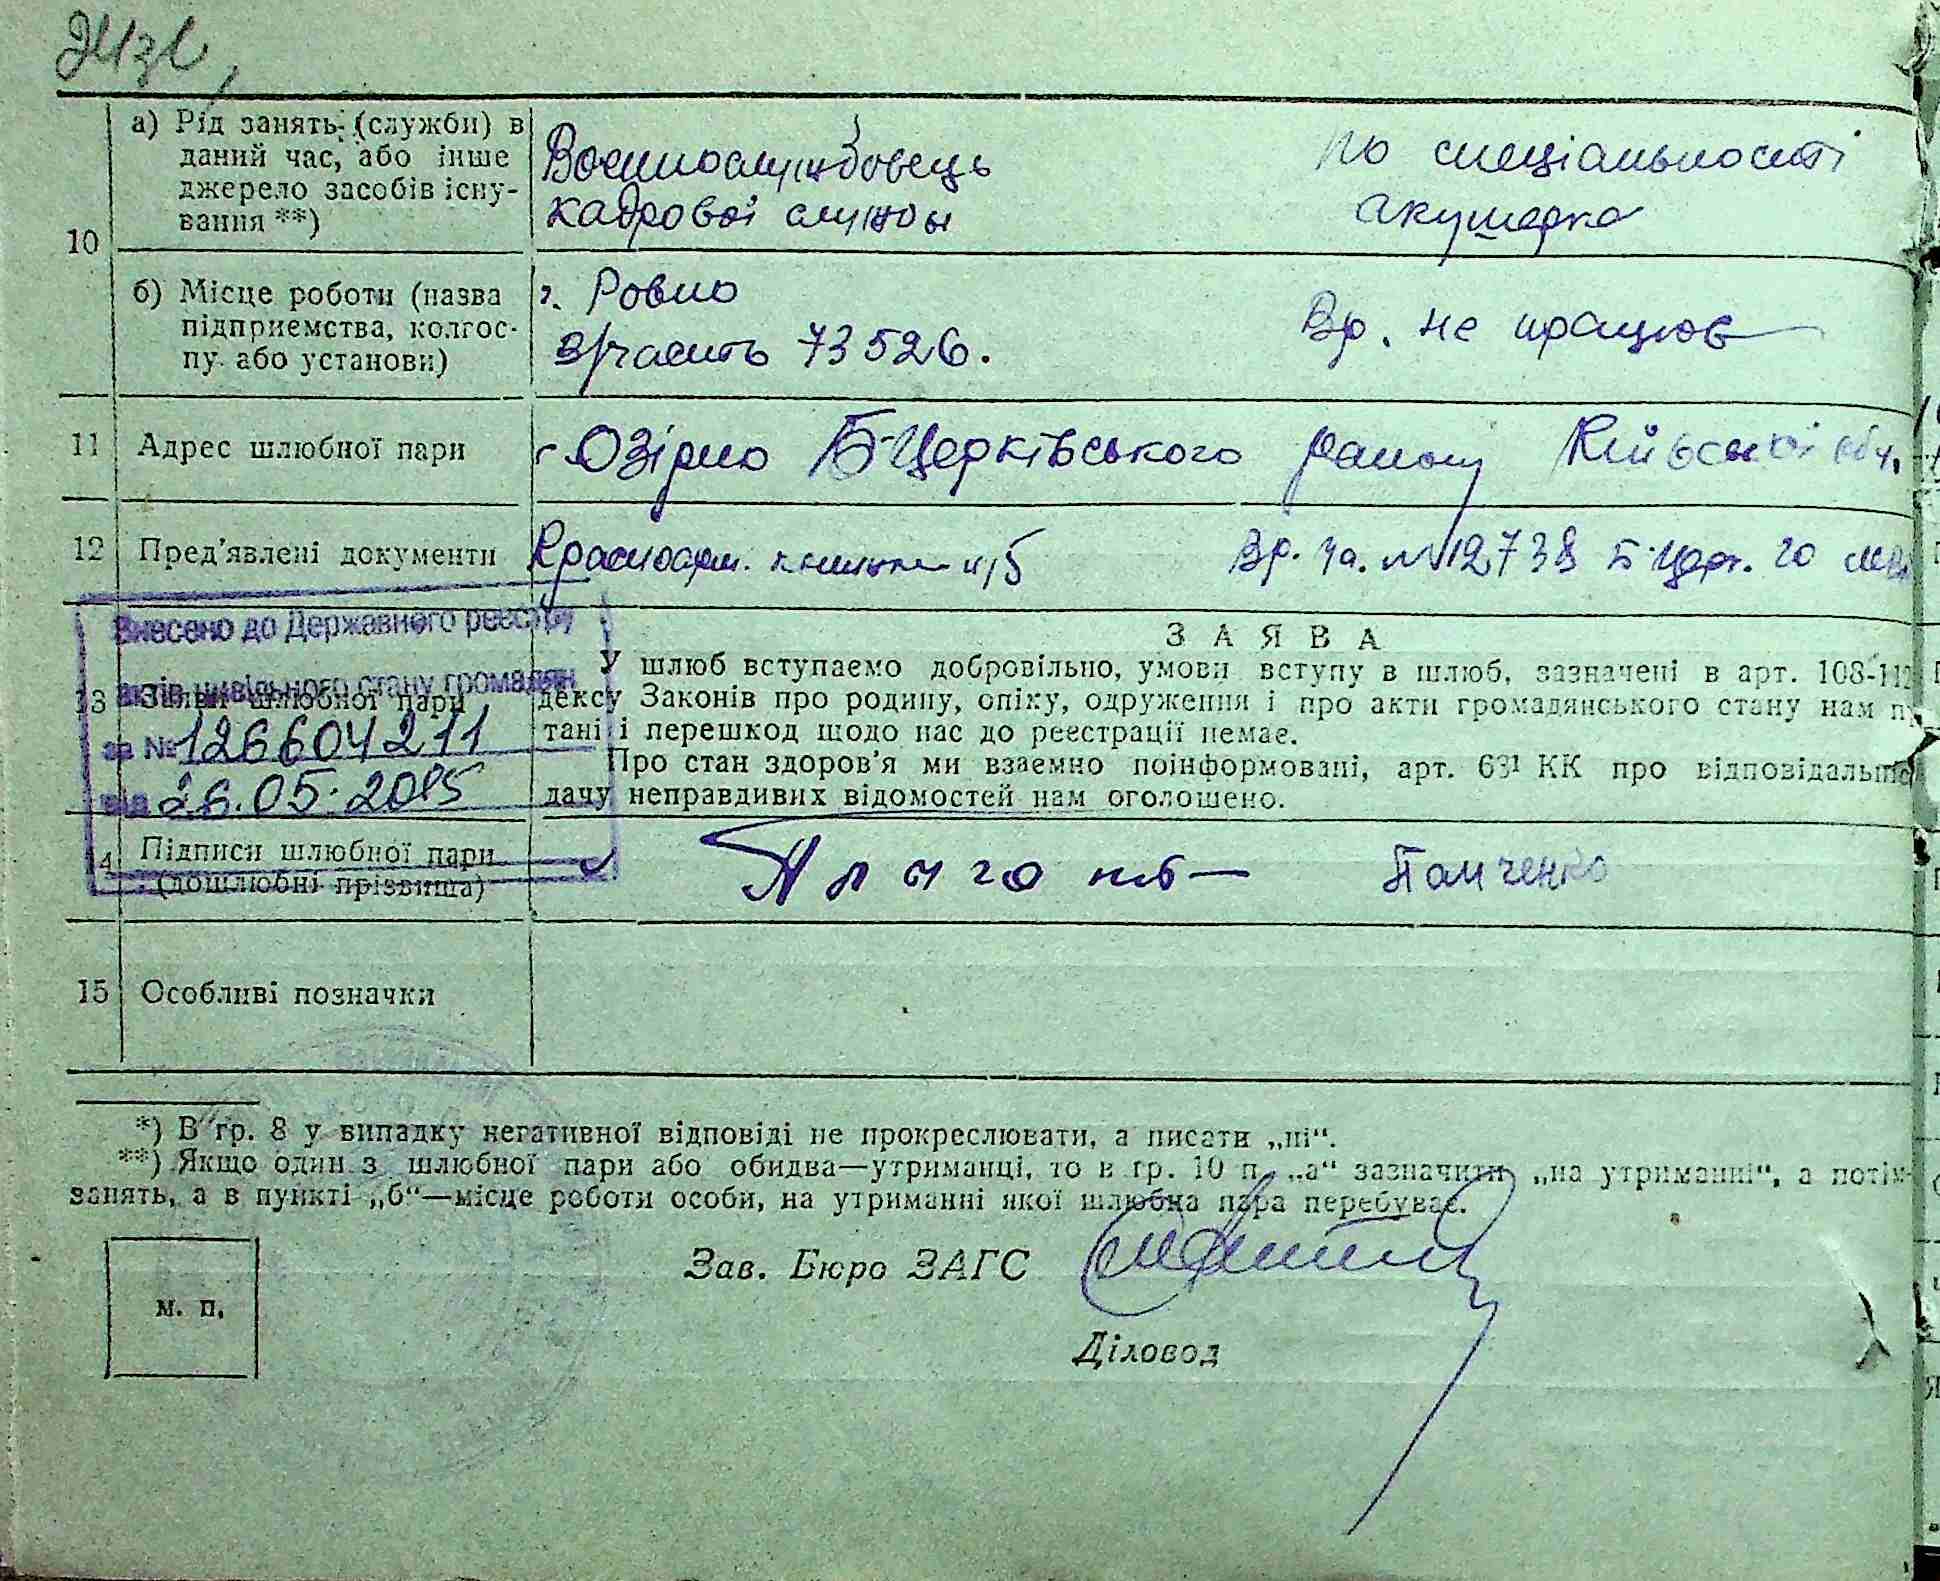 10
а) Рід занять (служби) в
даний час, або інше
джерело засобів існу-
вання **)
Воєннослужбовець
кадрової служби
по спеціальності
акушерка
б) Місце роботи (назва
підприємства, колгос-
пу або установи)
г. Ровно
в/часть 73526.
Вр. не працює
11 Адрес шлюбної пари
с. Озірно Б-Церківського району Київської обл.
12 Пред'явлені документи
Красноарм. книжка
Вр. № 12738 Б-Церк.
Внесено до Державного реєстру
актів цивільного стану громадян
за № 126604211
від 26.05.2015
13 Заяви шлюбної пари
ЗАЯВА
У шлюб вступаємо добровільно, умови вступу в шлюб, зазначені в арт. 108-112
дексу Законів про родину, опіку, одруження і про акти громадянського стану нам п
тані і перешкод щодо нас до реєстрації немає.
Про стан здоров'я ми взаємно поінформовані, арт. 63¹ КК про відповідальніс
дачу неправдивих відомостей нам оголошено.
14 Підписи шлюбної пари
(дошлюбні прізвища)
Панченко
15 Особливі позначки
*) В гр. 8 у випадку негативної відповіді не прокреслювати, а писати „ні“.
**) Якщо один з шлюбної пари або обидва—утриманці, то в гр. 10 п. „а“ зазначити „на утриманні“, а потім
занять, а в пункті „б“—місце роботи особи, на утриманні якої шлюбна пара перебуває.
Зав. Бюро ЗАГС
м. п.
Діловод